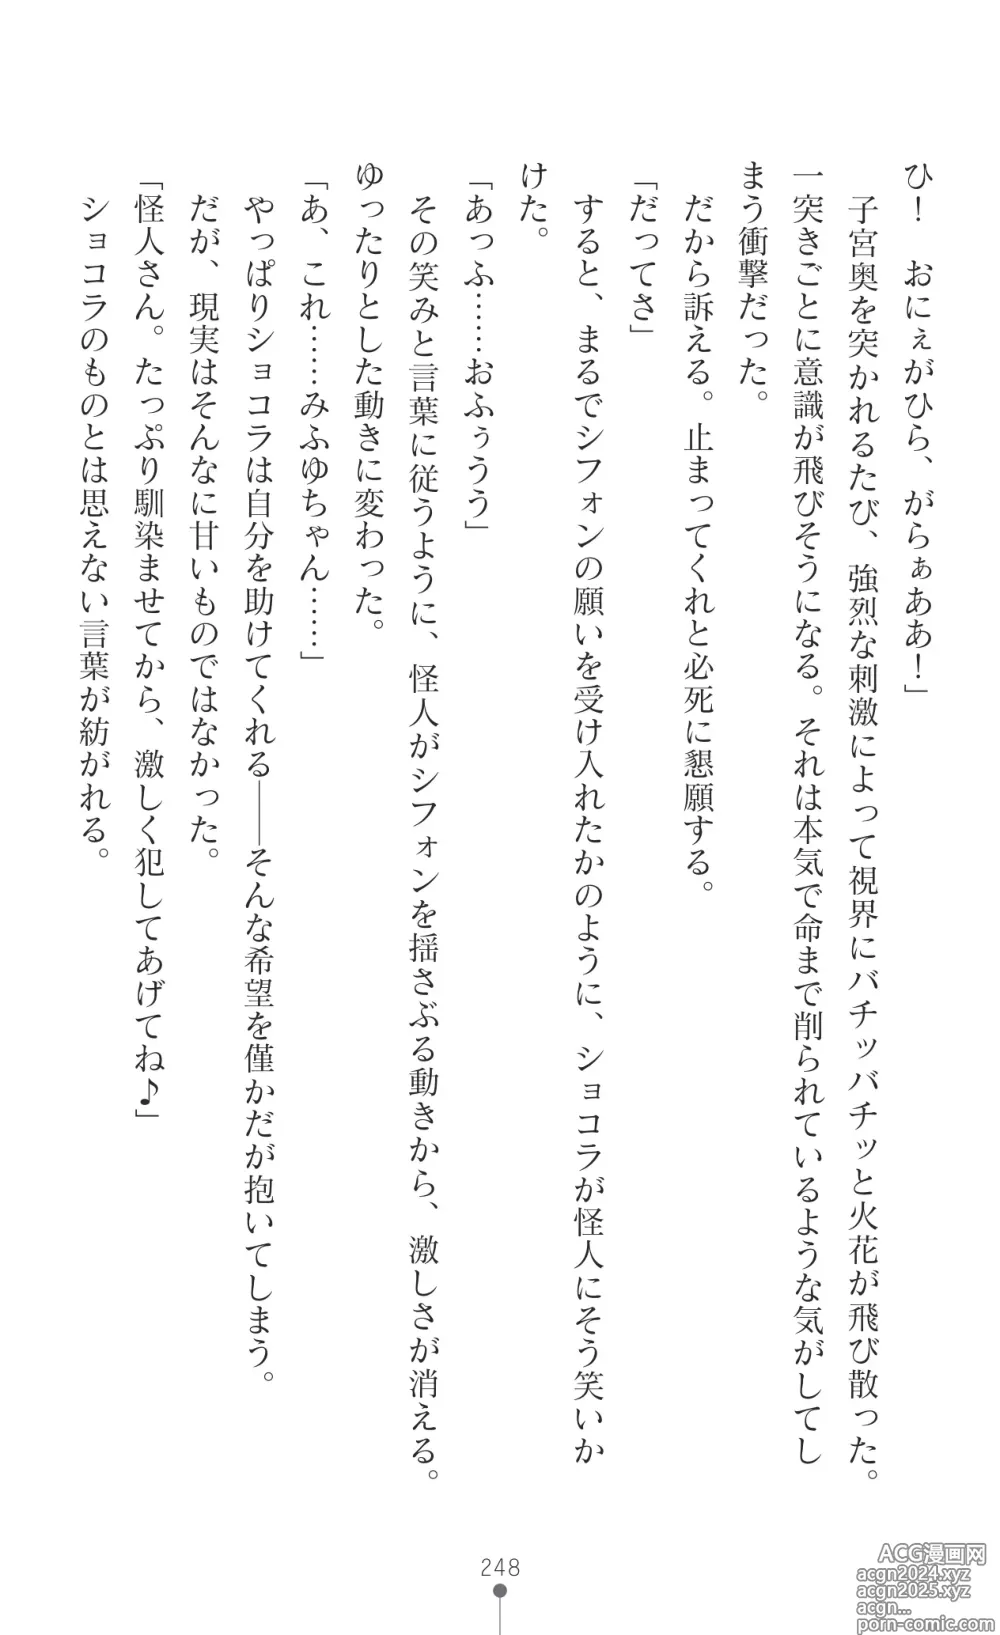 ひ！　おにぇがひら、がらぁああ！」
　子宮奥を突かれるたび、強烈な刺激によって視界にバチッバチッと火花が飛び散った。
一突きごとに意識が飛びそうになる。それは本気で命まで削られているような気がしてし
まう衝撃だった。
　だから訴える。止まってくれと必死に懇願する。
「だってさ」
　すると、まるでシフォンの願いを受け入れたかのように、ショコラが怪人にそう笑いか
けた。
「あっふ……おふぅうう」
　その笑みと言葉に従うように、怪人がシフォンを揺さぶる動きから、激しさが消える。
ゆったりとした動きに変わった。
「あ、これ……みふゆちゃん……」
　やっぱりショコラは自分を助けてくれる――そんな希望を僅かだが抱いてしまう。
　だが、現実はそんなに甘いものではなかった。
「怪人さん。たっぷり馴染ませてから、激しく犯してあげてね♪」
　ショコラのものとは思えない言葉が紡がれる。
248
ACG漫画网
acgn2024.xyz
acgn2025.xyz
acgn...
porn-comic.com